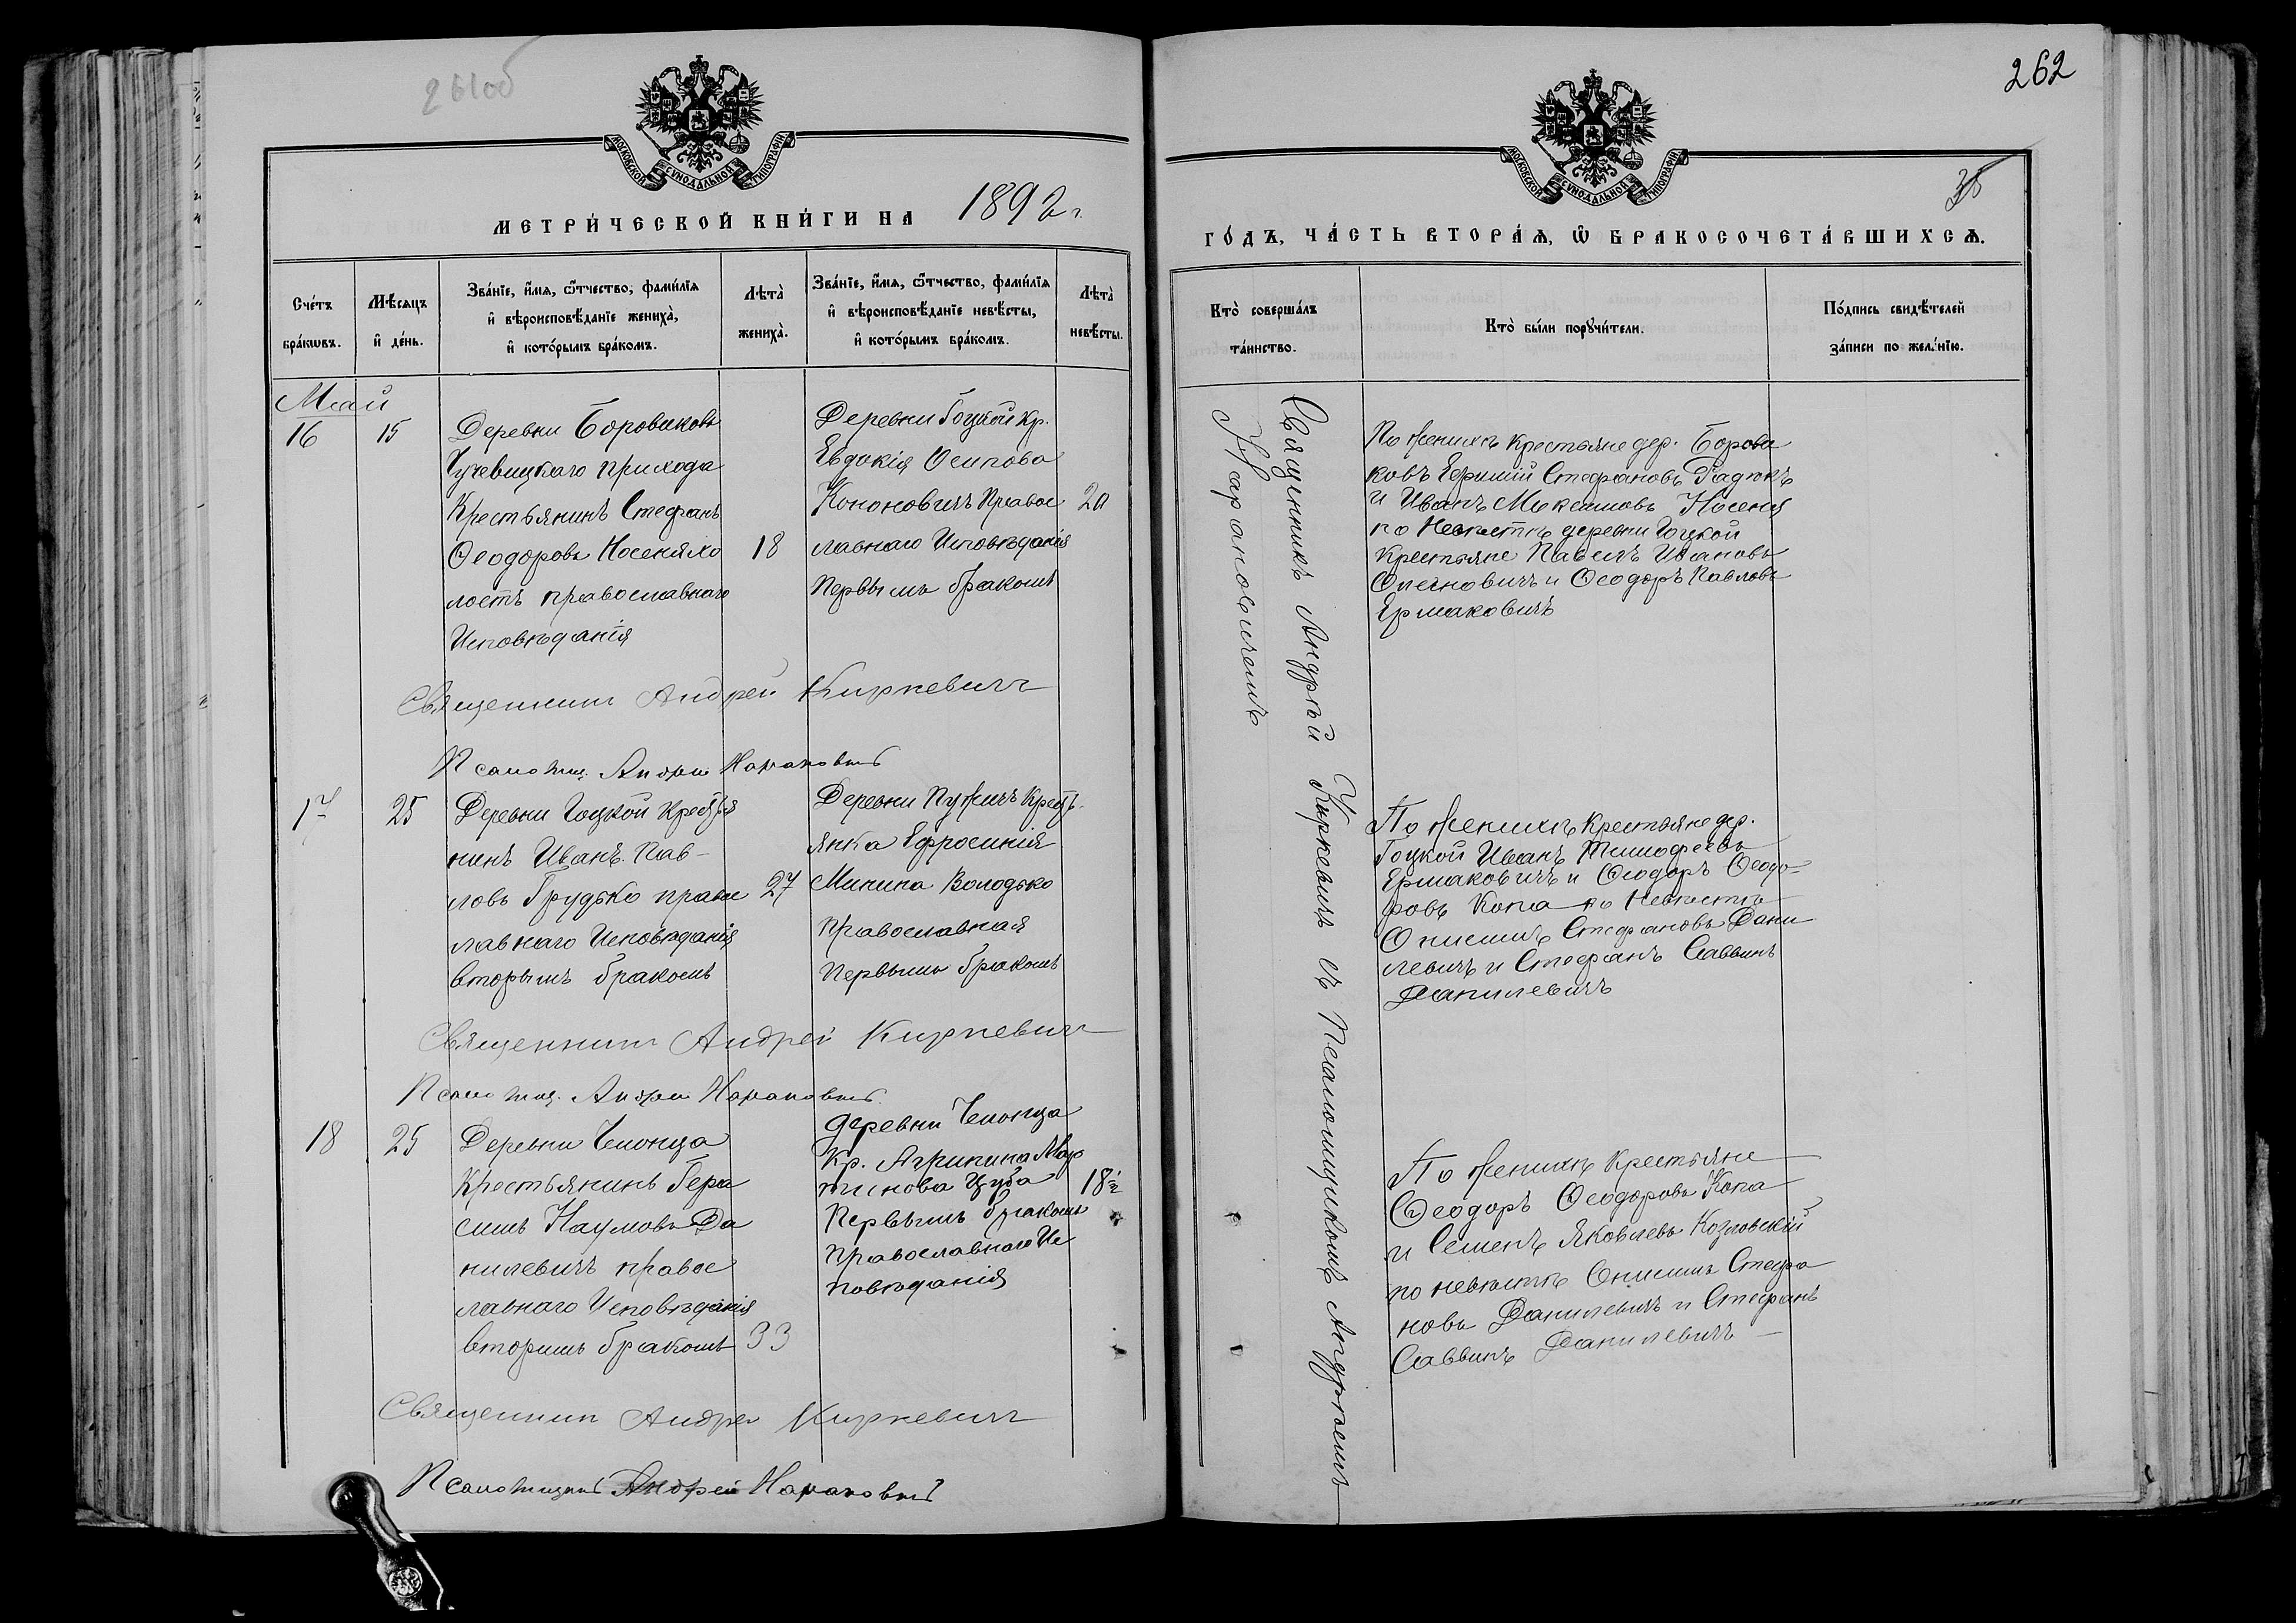 261об
МОСКОВСКОЙ СУНОДАЛЬНОЙ ТИПОГРАФІИ
МЕТРИ́ЧЕСКОЙ КНИ́ГИ НА 1892 г.
Сче́тъ бра́кѡвъ.
Мѣ́сяцъ и҆ де́нь.
Зва́нїе, и҆́мя, ѻ҆́тчество, фами́лїя и҆ вѣроисповѣ́данїе жениха̀, и҆ кото́рымъ бра́комъ.
Лѣ́та жениха̀.
Зва́нїе, и҆́мя, ѻ҆́тчество, фами́лїя и҆ вѣроисповѣ́данїе невѣ́сты, и҆ кото́рымъ бра́комъ.
Лѣ́та невѣ́сты.
Май
16
15
Деревни Боровиковъ
Чучевицкаго прихода
Крестьянинъ Стефанъ
Ѳеодоровъ Носеняхо
лостъ православнаго
Исповѣданія
18
Деревни Гоцкой кр.
Евдокія Осипова
Кононовичъ Правос
лавнаго Исповѣданія
Первымъ бракомъ
20
Священникъ Андрей Киркевичъ
Псаломщ. Андрей
17
25
Деревни Гоцкой Кресть
нинъ Иванъ Пав-
ловъ Грудько правос
лавнаго Исповѣданія
вторымъ бракомъ
27
Деревни Пужичъ Кресть-
янка Ефросинія
Минина Володько
православная
Первымъ бракомъ
Священникъ Андрей Киркевичъ
Псаломщ. Андрей
18
25
Деревни
Крестьянинъ Гера
симъ Наумовъ Да
нилевичъ правос
лавнаго Исповѣданія
вторымъ бракомъ
33
деревни
Кр. Агрипина Мар
тинова Цуба
Первымъ бракомъ
православнаго Ис
повѣданія
18 1/2
Священник Андрей Киркевичъ
Псаломщикъ Андрей
262
МОСКОВСКОЙ СУНОДАЛЬНОЙ ТИПОГРАФІИ
ГО́ДЪ, ЧА́СТЬ ВТОРА́Ѧ, Ѡ҆ БРАКОСОЧЕТА́ВШИХСѦ.
Кто̀ соверша́лъ та́инство.
Кто̀ бы́ли порꙋчи́тели.
По́дпись свидѣ́телей за́писи по жела́нїю.
Священникъ Андрей Киркевичъ съ Псаломщикомъ Андреемъ
По женихѣ крестьяне дер. Борови
ковъ Ефимій Стефановъ Радюкъ
и Иванъ Максимовъ Носеня
по Невѣстѣ деревни Гоцкой
крестьяне Павелъ Ивановъ
и Ѳеодоръ Павловъ
Ермаковичъ
По женихѣ крестьяне дер.
Гоцкой Иванъ Тимофеевъ
Ермаковичъ и Ѳеодоръ Ѳеодо-
ровъ Копа по Невѣстѣ
Онисимъ Стефановъ Дани
левичъ и Стефанъ Саввинъ
Данилевичъ
По женихѣ Крестьяне
Ѳеодоръ Ѳеодоровъ Копа
и Семенъ Яковлевъ Козловскій
по невѣстѣ Онисимъ Стефа
новъ Данилевичъ и Стефанъ
Саввинъ Данилевичъ